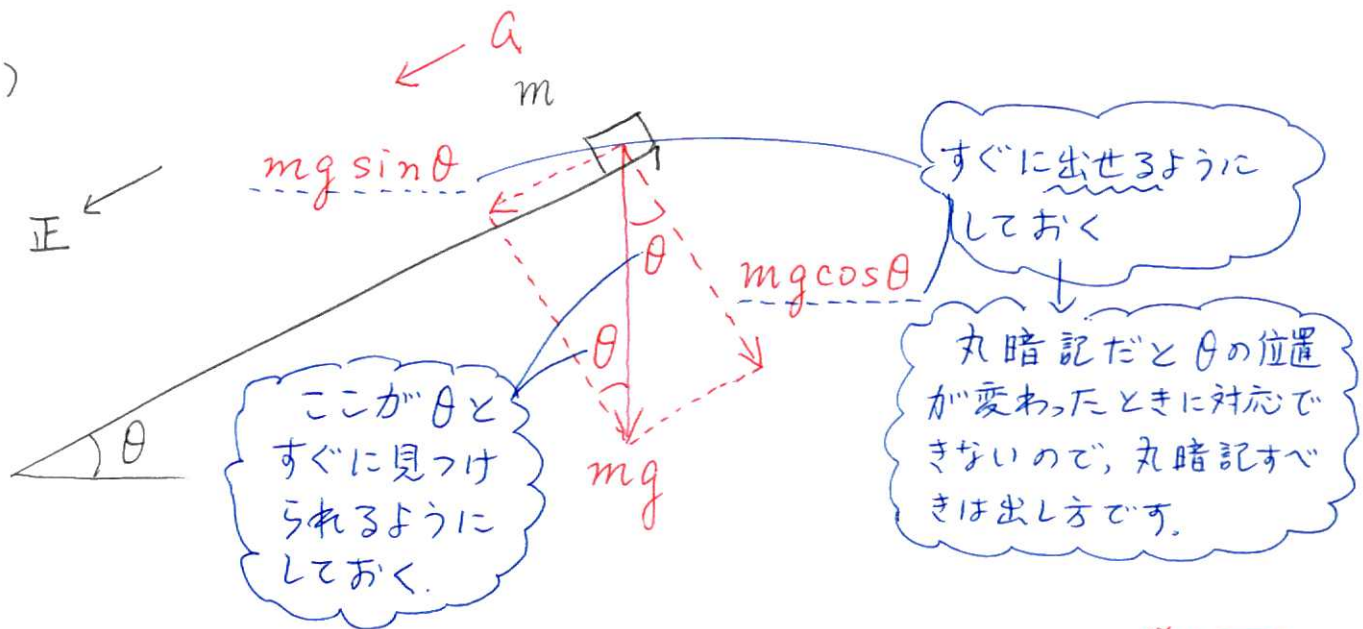 )
a
m
mg sinθ
正
θ
θ
θ
mg cosθ
mg
すぐに出せるように
しておく
丸暗記だとθの位置
が変わったときに対応で
きないので,丸暗記すべ
きは出し方です.
ここがθと
すぐに見つけ
られるように
しておく.